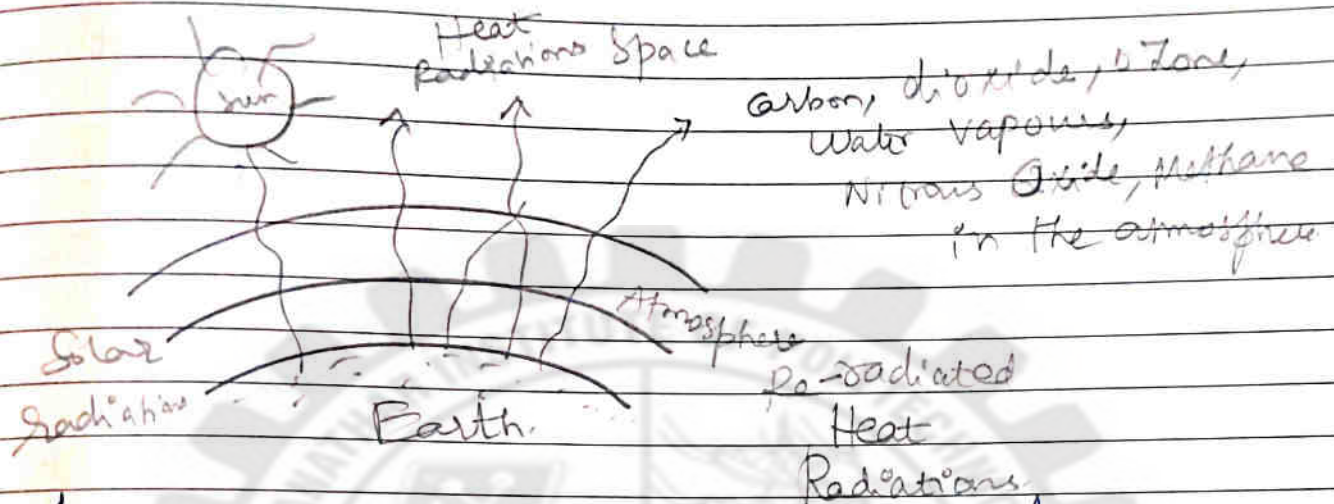 Heat
Radiations Space
Sun
Carbon, dioxide, Ozone,
Water vapours,
Nitrous Oxide, Methane
in the atmosphere
Atmosphere
Solar
Radiation
Earth.
Re-radiated
Heat
Radiations
INSTITUTE OF